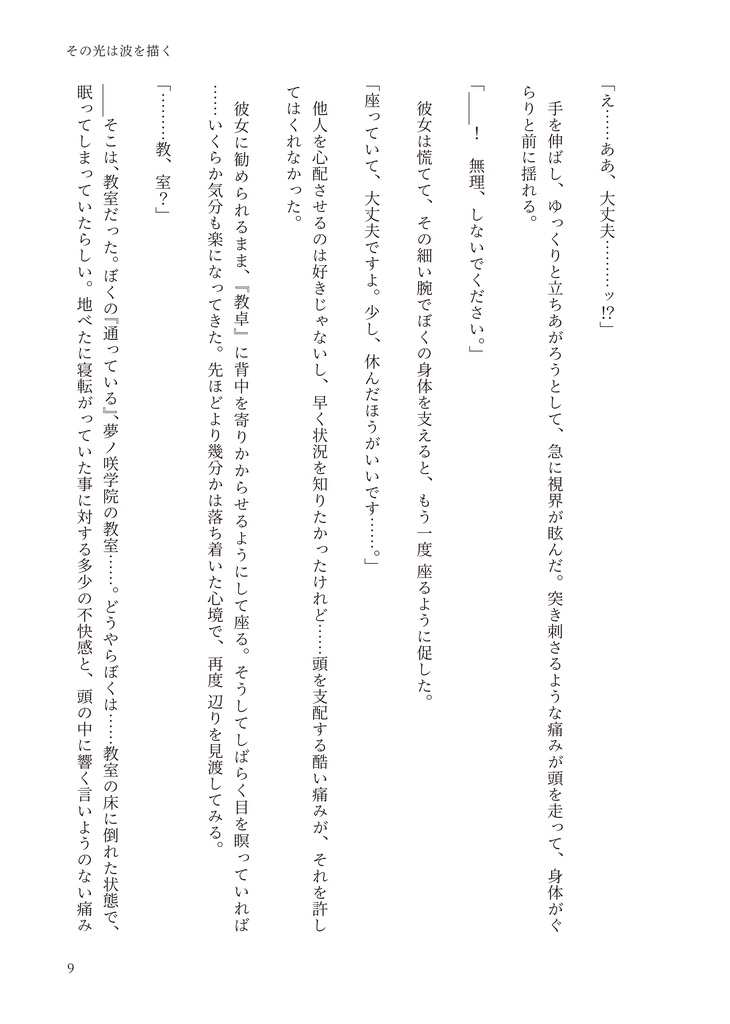 その光は波を描く
「え……ああ、大丈夫………ッ!?」
　手を伸ばし、ゆっくりと立ちあがろうとして、急に視界が眩んだ。突き刺さるような痛みが頭を走って、身体がぐ
らりと前に揺れる。
「――！　無理、しないでください。」
　彼女は慌てて、その細い腕でぼくの身体を支えると、もう一度 座るように促した。
「座っていて、大丈夫ですよ。少し、休んだほうがいいです……。」
　他人を心配させるのは好きじゃないし、早く状況を知りたかったけれど……頭を支配する酷い痛みが、それを許し
てはくれなかった。
　彼女に勧められるまま、『教卓』に背中を寄りかからせるようにして座る。そうしてしばらく目を瞑っていれば
……いくらか気分も楽になってきた。先ほどより幾分かは落ち着いた心境で、再度 辺りを見渡してみる。
「…………教、室？」
――そこは、教室だった。ぼくの『通っている』、夢ノ咲学院の教室……。どうやらぼくは……教室の床に倒れた状態で、
眠ってしまっていたらしい。地べたに寝転がっていた事に対する多少の不快感と、頭の中に響く言いようのない痛み
9